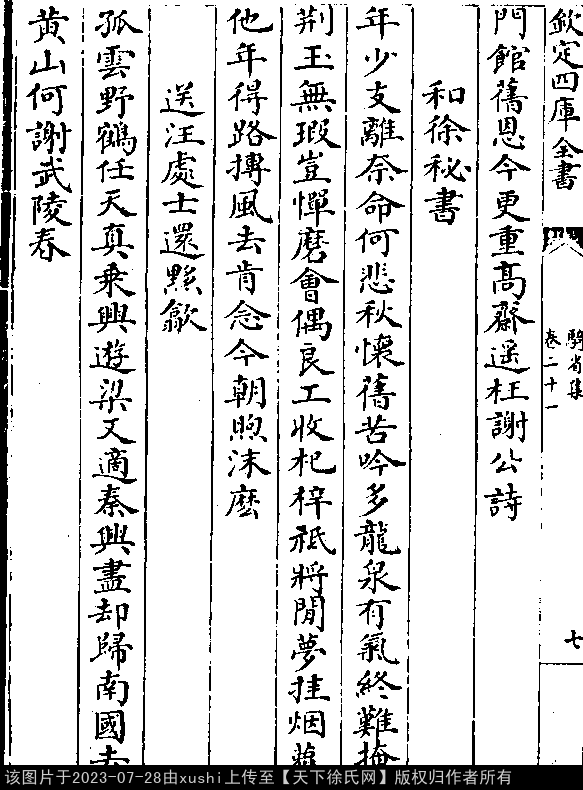 欽定四庫全書
騎省集
卷二十一
七
門館舊恩今更重高齋遥枉謝公詩
和徐秘書
年少支離奈命何悲秋懷舊苦吟多龍泉有氣終難掩
荆玉無瑕豈憚磨會偶良工收杞梓秪將閒夢挂烟蘿
他年得路摶風去肯念今朝喣沫麽
送汪處士還黟歙
孤雲野鶴任天真乘興遊梁又適秦興盡却歸南國去
黄山何謝武陵春
该图片于2023-07-28由xushi上传至【天下徐氏网】版权归作者所有